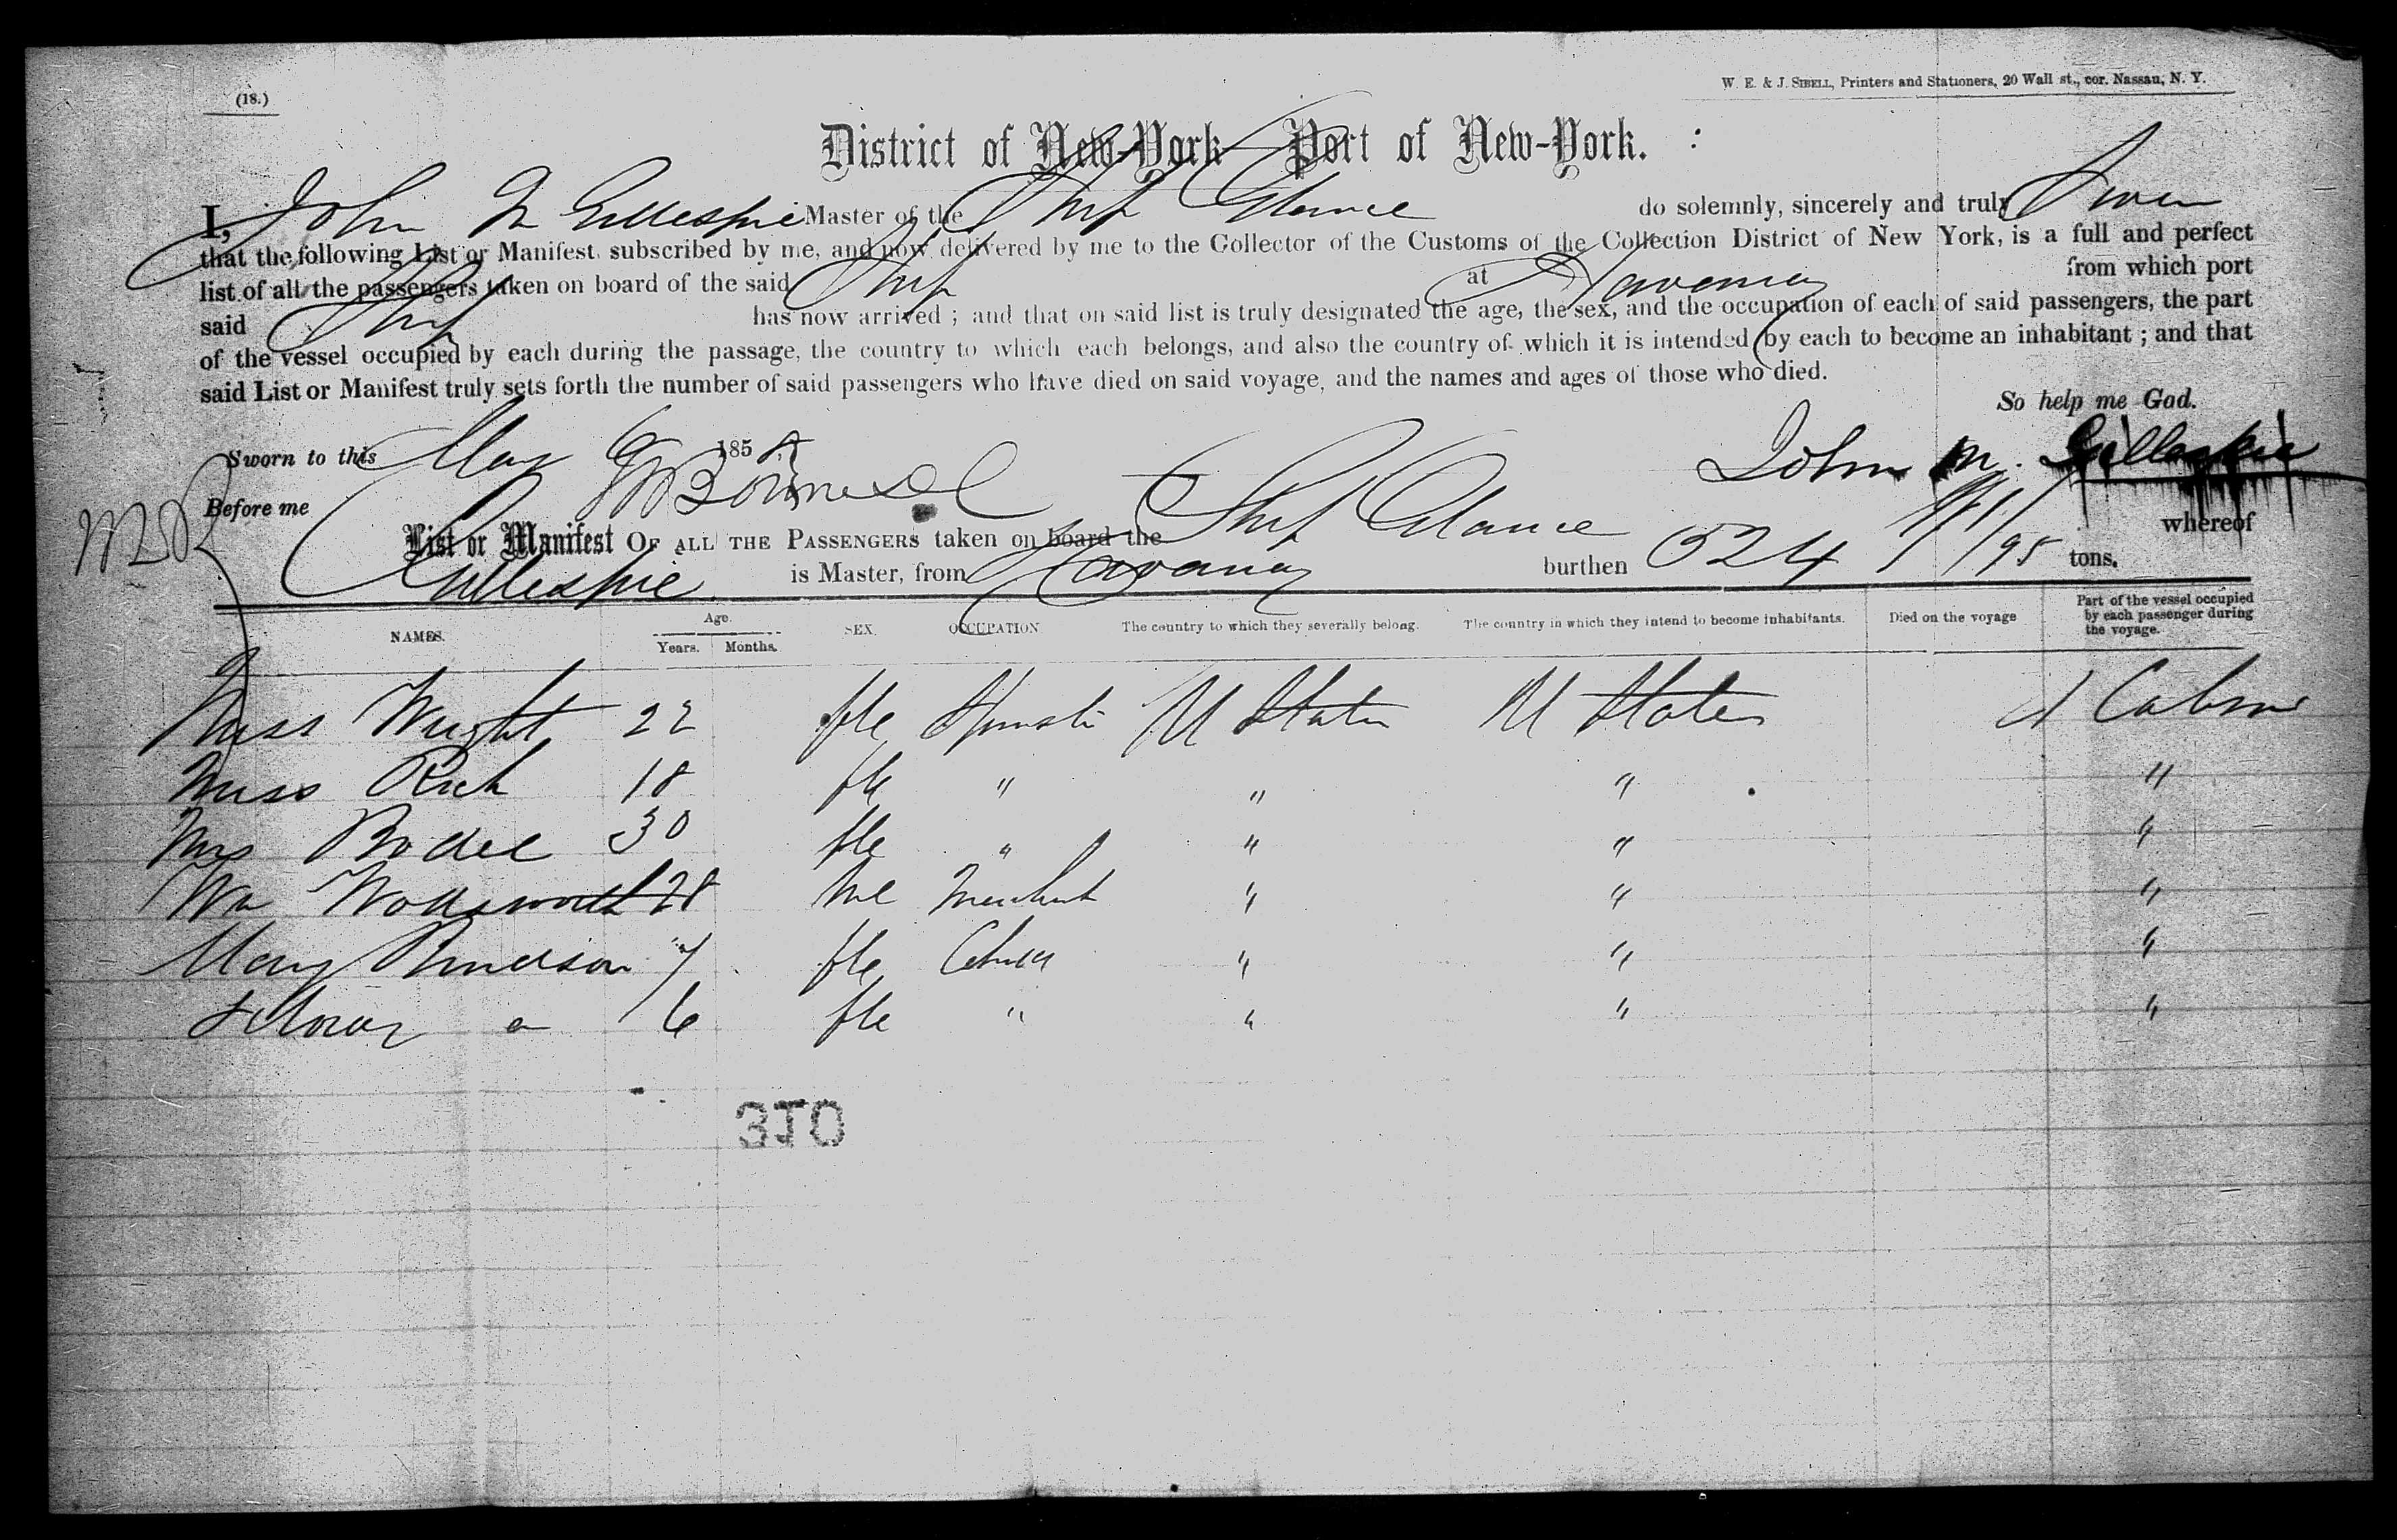 (18.)
W. E. & J. SIBELL, Printers and Stationers, 20 Wall st., cor. Nassau, N. Y.
District of New-York Port of New-York.
I, John M Gillespie Master of the Ship Glance do solemnly, sincerely and truly Swear
that the following List or Manifest subscribed by me, and now delivered by me to the Collector of the Customs of the Collection District of New York, is a full and perfect
list of all the passengers taken on board of the said Ship at Havana from which port
said Ship has now arrived ; and that on said list is truly designated the age, the sex, and the occupation of each of said passengers, the part
of the vessel occupied by each during the passage, the country to which each belongs, and also the country of which it is intended by each to become an inhabitant ; and that
said List or Manifest truly sets forth the number of said passengers who have died on said voyage, and the names and ages of those who died.
So help me God.
Sworn to this May 6 185
John M. Gillespie
Before me
List or Manifest OF ALL THE PASSENGERS taken on board the Ship Glance whereof
Gillespie is Master, from Havana burthen 524 /95 tons.
NAMES. Age. Years. Months. SEX. OCCUPATION. The country to which they severally belong. The country in which they intend to become inhabitants. Died on the voyage Part of the vessel occupied by each passenger during the voyage.
Miss Wright 22 fle U States U States Cabin
Miss Rich 18 fle " " " "
Mrs Bodel 30 fle " " " "
Wm Wodsworth 28 Me Merchant " " "
Mary 7 fle " " "
6 fle " " " "
310